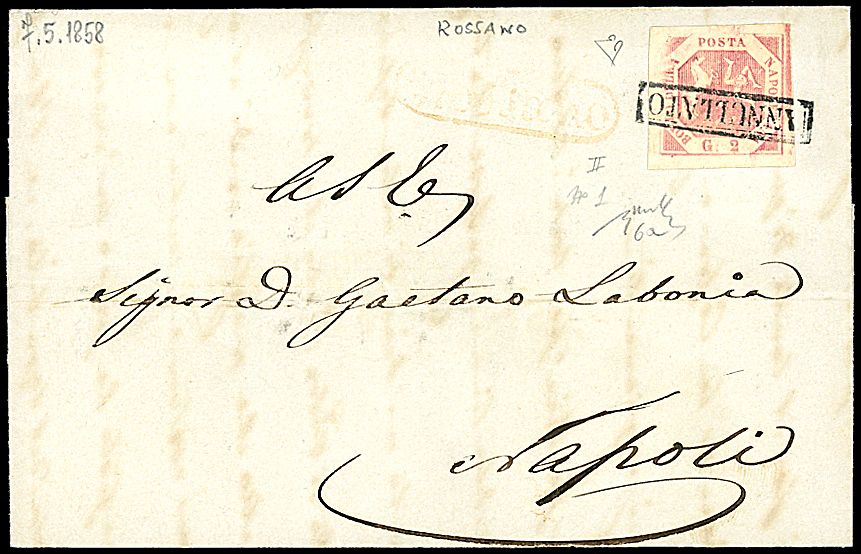 7.5.1858
ROSSANO
POSTA
NAPO
BOL
G. 2
ANNULLATO
II
No 1
6a
A S E
Signor D. Gaetano Labonia
Napoli